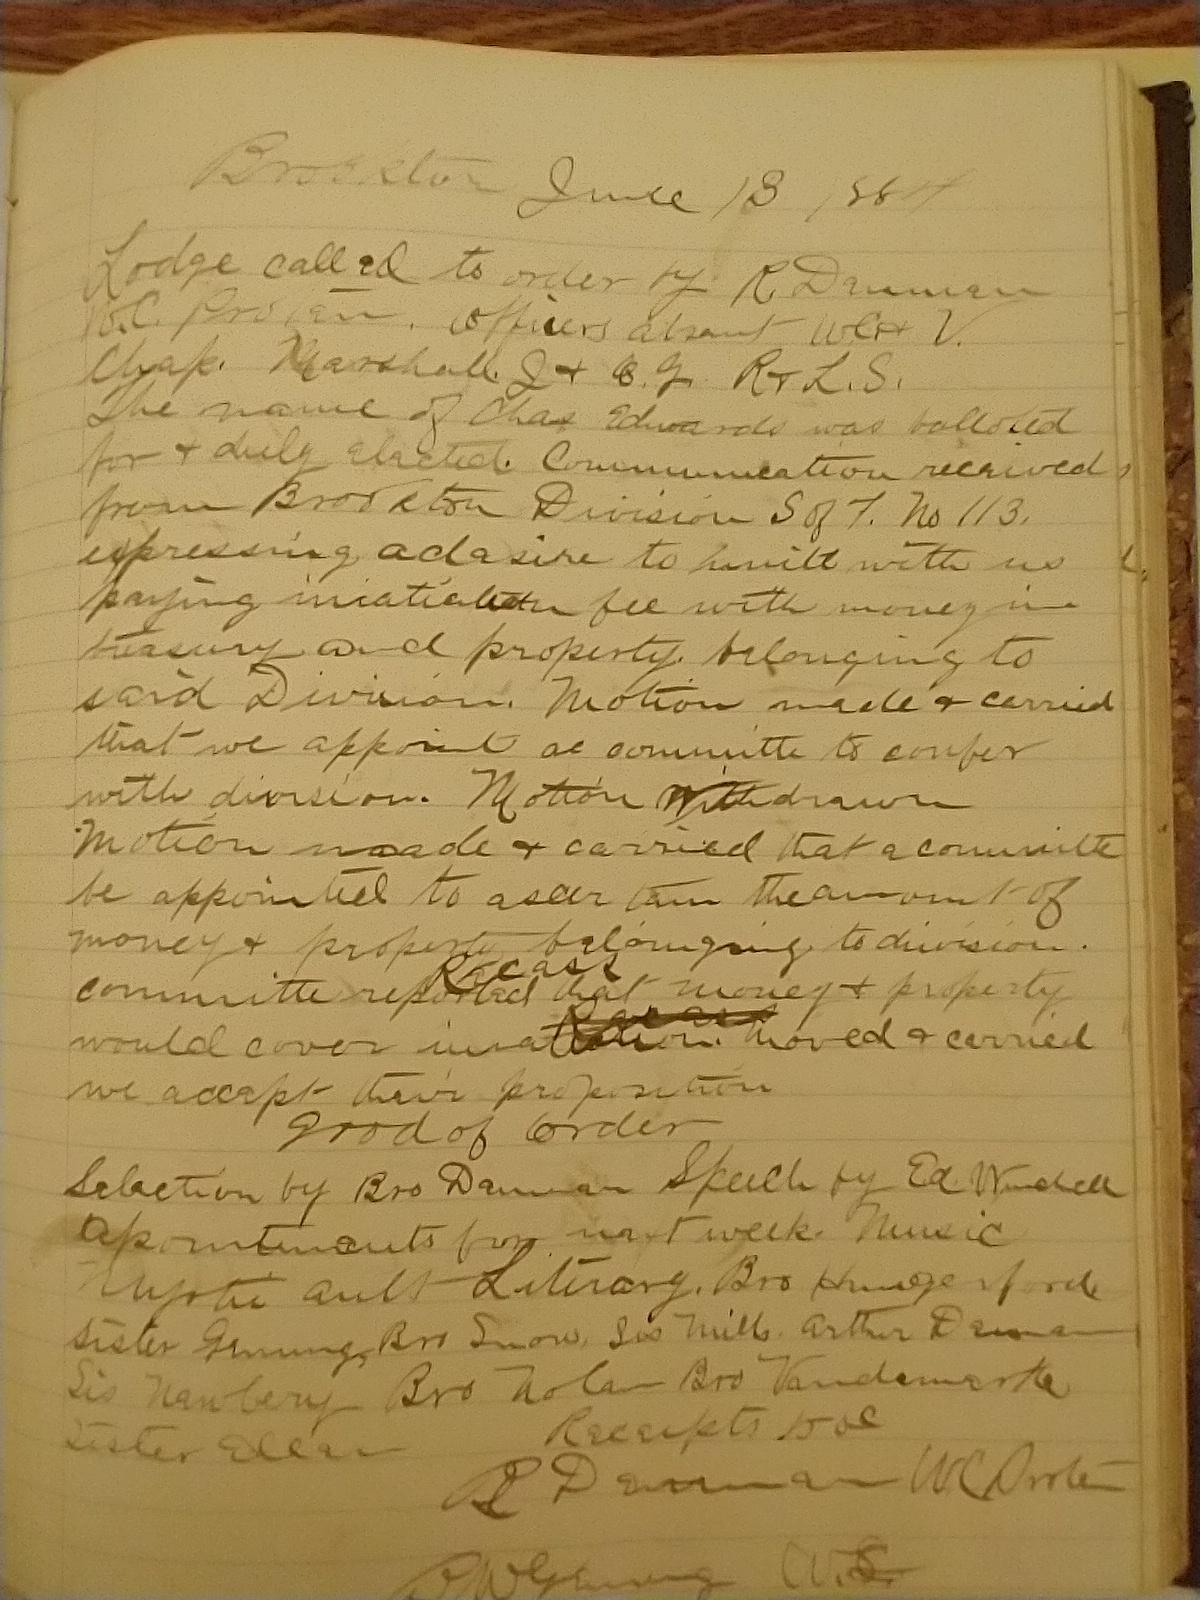 Brookton June 13 1884
Lodge called to order by R Denman
W.C. Pro tem. Officers absent WC & V.
Chap. Marshall. I & O.G. R & L.S.
The name of Chas Edwards was balloted
for & duly elected. Communication received
from Brookton Division S of T. No 113.
expressing a desire to unite with us
paying iniatiation fee with money in
treasury and property belonging to
said Division. Motion made & carried
that we appoint a committe to confer
with division. Motion Withdrawn
Motion made & carried that a committe
be appointed to ascertain the amount of
money & property belonging to division.
Recess
committe reported that money & property
would cover iniatiation. Moved & carried
we accept their proposition
Good of Order
Selection by Bro Denman Speech by Ed.
Apointments for next week. Music
Literary. Bro Hungerford
Sister Genung, Bro Snow, Sis Mills. Arthur Denman
Sis Newbery Bro Nolan Bro Vandemarke
Sister Ellen
Receipts 50c
R Denman WC Protem
Genung W.S.